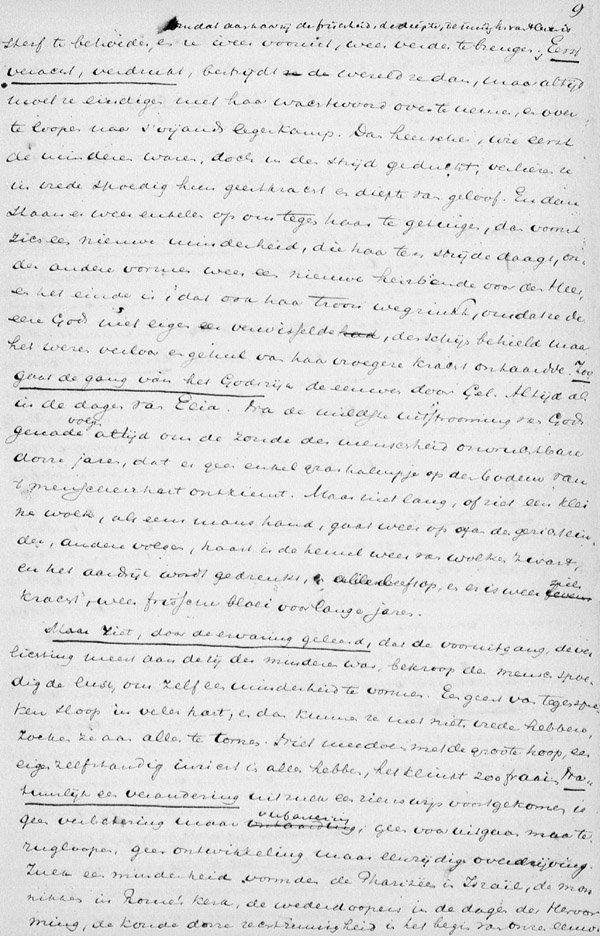 9
omdat aan haar zij de frischheid, de diepte, de innigh. van 't leven is
sterf te behoeden, en ze weer vooruit, weer verder te brengen; Eerst
veracht, verdrukt, bestrijdt ze de wereld ze dan, maar altijd
moet ze eindigen met haar wachtwoord over te nemen, en over
te loopen naar 's vijands legerkamp. Dan heerschen, wie eerst
de minderen waren, doch in den strijd geducht, verliezen ze
in vrede spoedig hun geestkracht en diepte van geloof. En dan
staan er weer enkelen op om tegen haar te getuigen, dan vormt
zich een nieuwe minderheid, die haar ten strijde daagt, on-
der andere vormen weer een nieuwe heirbende voor den Heer,
en het einde is, dat ook haar troon wegzinkt, omdat ze de
eere Gods met eigen eer verwisselde, den schijn behield maar
het wezen verloor en geheel van haar vroegere kracht ontaardde. Zoo
gaat de gang van het Godsrijk de eeuwen door Gel. Altijd als
in de dagen van Elia. Na de mildste uitstrooming van Gods
genade volgen altijd om de zonde der menschheid onvruchtbare
dorre jaren, dat er geen enkel grashalmpje op den bodem van
't menschenhart ontkiemt. Maar niet lang, of ziet een klei
ne wolk, als eens mans hand, gaat weer op aan de gezichtein-
der, andere volgen, haast is de hemel weer van wolken zwart,
en het aardrijk wordt gedrenkt, en alles leeft op, en er is weer ziels
kracht, weer frissche bloei voor lange jaren.
Maar ziet, door de ervaring geleerd, dat de vooruitgang, de ver
lichting meest aan de zij der minderen was, bekroop den mensch spoe-
dig de lust, om zelf een minderheid te vormen. Een geest van tegenspre-
ken sloop in veler hart, en dan kunnen ze met niets vrede hebben,
zoeken ze aan alles te tornen. Niet meedoen met de groote hoop, een
eigen zelfstandig inzicht in alles hebben, het klinkt zoo fraai. Na-
tuurlijk een verandering uit zulk een zienswijs voortgekomen is
geen verbetering maar verbastering, geen vooruitgaan maar te-
rugloopen, geen ontwikkeling maar eenzijdige overdrijving.
Zulk een minderheid vormden de Pharizeen in Israël, de mon
nikken in Rome's kerk, de wederdoopers in de dagen der Hervor
ming, de koude dorre rechtzinnigheid in het begin van onze eeuw